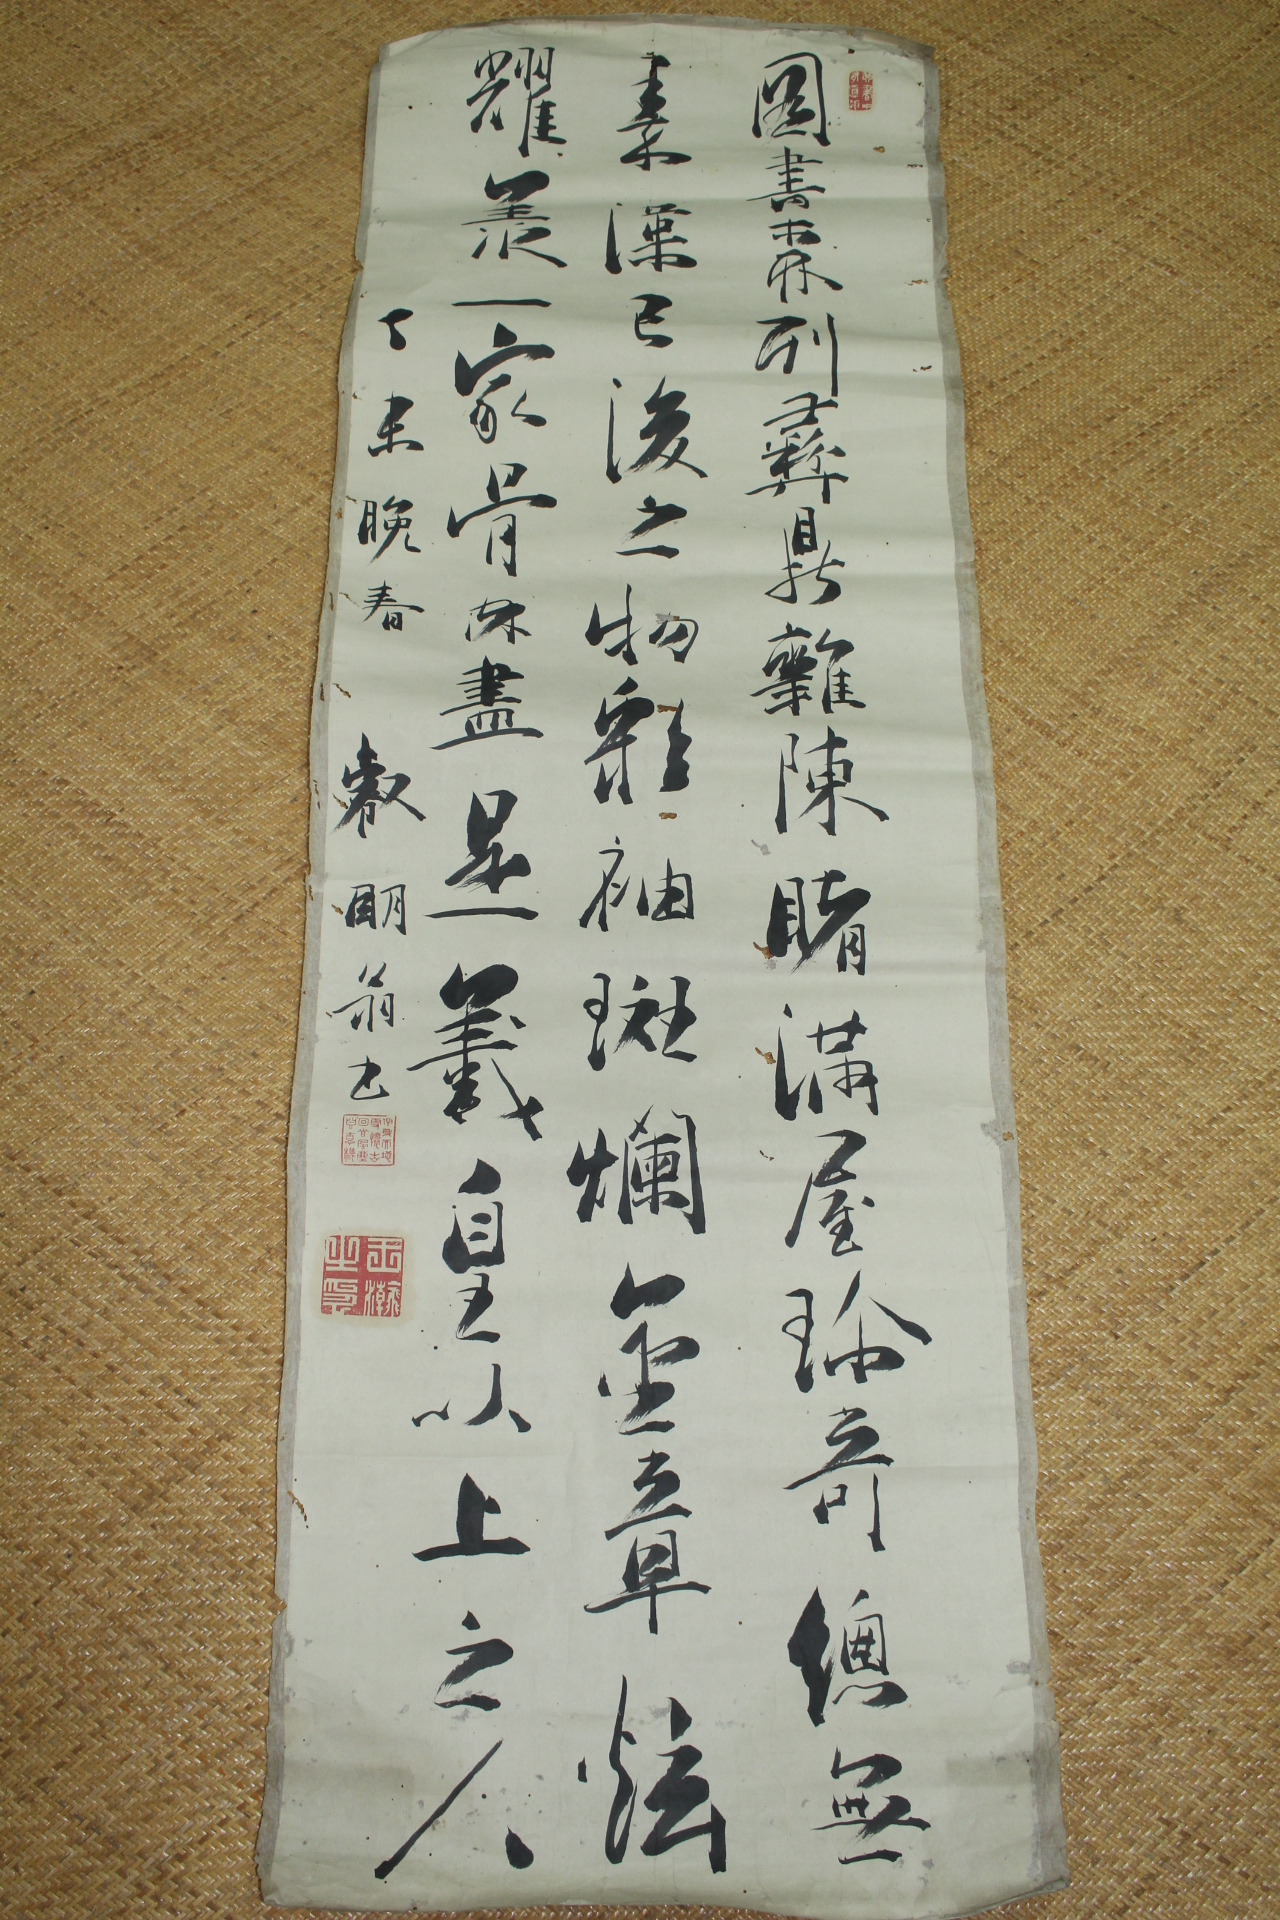 圖書森列彝鼎雜陳睹滿屋珍奇總無
秦漢已後之物彩袖斑斕金章炫
耀羨一家骨肉盡是羲皇以上之人
丁未晚春
明翁書
之印